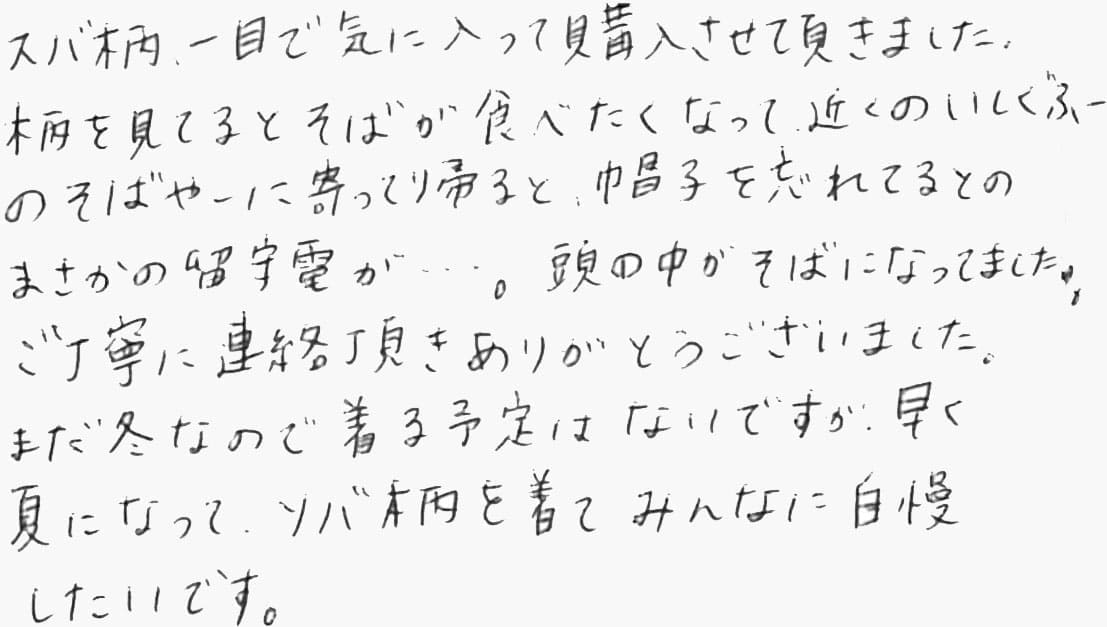 スバ柄、一目で気に入って購入させて頂きました。
柄を見てるとそばが食べたくなって、近くのいしぐふー
のそばやーに寄ってり帰ると、帽子を忘れてるとの
まさかの留守電が…。頭の中がそばになってました。
ご丁寧に連絡頂きありがとうございました。
まだ冬なので着る予定はないですが、早く
夏になって、ソバ柄を着てみんなに自慢
したいです。